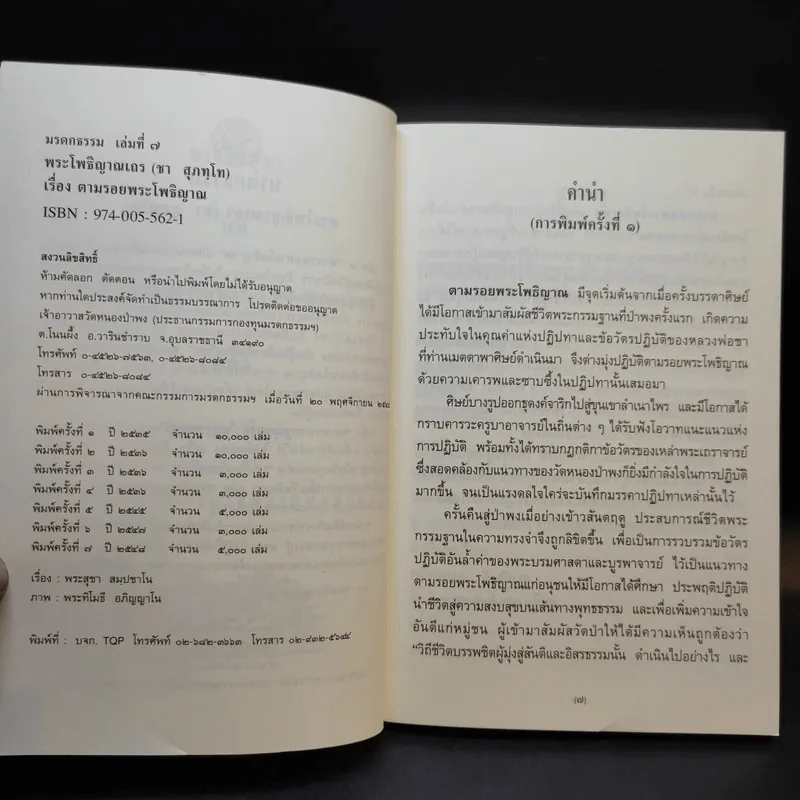 มรดกธรรม เล่มที่ ๗
พระโพธิญาณเถร (ชา สุภทฺโท)
เรื่อง ตามรอยพระโพธิญาณ
ISBN : 974-005-562-1
สงวนลิขสิทธิ์
ห้ามคัดลอก ตัดตอน หรือนำไปพิมพ์โดยไม่ได้รับอนุญาต
หากท่านใดประสงค์จัดทำเป็นธรรมบรรณาการ โปรดติดต่อขออนุญาต
เจ้าอาวาสวัดหนองป่าพง (ประธานกรรมการกองทุนมรดกธรรมฯ)
ต.โนนผึ้ง อ.วารินชำราบ จ.อุบลราชธานี ๓๔๑๙๐
โทรศัพท์ ๐-๔๕๒๖-๗๕๖๓, ๐-๔๕๒๖-๘๐๘๔
โทรสาร ๐-๔๕๒๖-๘๐๘๔
ผ่านการพิจารณาจากคณะกรรมการมรดกธรรมฯ เมื่อวันที่ ๒๐ พฤศจิกายน
พิมพ์ครั้งที่ ๑ ปี ๒๕๓๕ จำนวน ๑๐,๐๐๐ เล่ม
พิมพ์ครั้งที่ ๒ ปี ๒๕๓๖ จำนวน ๑๐,๐๐๐ เล่ม
พิมพ์ครั้งที่ ๓ ปี ๒๕๓๖ จำนวน ๓,๐๐๐ เล่ม
พิมพ์ครั้งที่ ๔ ปี ๒๕๓๖ จำนวน ๓,๐๐๐ เล่ม
พิมพ์ครั้งที่ ๕ ปี ๒๕๔๕ จำนวน ๕,๐๐๐ เล่ม
พิมพ์ครั้งที่ ๖ ปี ๒๕๔๗ จำนวน ๓,๐๐๐ เล่ม
พิมพ์ครั้งที่ ๗ ปี ๒๕๔๘ จำนวน ๕,๐๐๐ เล่ม
เรื่อง : พระสุชา สมฺปชาโน
ภาพ : พระทิโมธี อภิญฺญาโน
พิมพ์ที่ : บจก. TQP โทรศัพท์ ๐๒-๖๘๒-๓๖๖๓ โทรสาร ๐๒-๙๓๒-๕๖๔๔
คำนำ
(การพิมพ์ครั้งที่ ๑)
ตามรอยพระโพธิญาณ มีจุดเริ่มต้นจากเมื่อครั้งบรรดาศิษย์
ได้มีโอกาสเข้ามาสัมผัสชีวิตพระกรรมฐานที่ป่าพงครั้งแรก เกิดความ
ประทับใจในคุณค่าแห่งปฏิปทาและข้อวัตรปฏิบัติของหลวงพ่อชา
ที่ท่านเมตตาพาศิษย์ดำเนินมา จึงต่างมุ่งปฏิบัติตามรอยพระโพธิญาณ
ด้วยความเคารพและซาบซึ้งในปฏิปทานั้นเสมอมา
ศิษย์บางรูปออกธุดงค์จาริกไปสู่ขุนเขาลำเนาไพร และมีโอกาสได้
กราบคารวะครูบาอาจารย์ในถิ่นต่าง ๆ ได้รับฟังโอวาทแนะแนวแห่ง
การปฏิบัติ พร้อมทั้งได้ทราบกฎกติกาข้อวัตรของเหล่าพระเถราจารย์
ซึ่งสอดคล้องกับแนวทางของวัดหนองป่าพงก็ยิ่งมีกำลังใจในการปฏิบัติ
มากขึ้น จนเป็นแรงดลใจใคร่จะบันทึกมรรคาปฏิปทาเหล่านั้นไว้
ครั้นคืนสู่ป่าพงเมื่อย่างเข้าวสันตฤดู ประสบการณ์ชีวิตพระ
กรรมฐานในความทรงจำจึงถูกลิขิตขึ้น เพื่อเป็นการรวบรวมข้อวัตร
ปฏิบัติอันล้ำค่าของพระบรมศาสดาและบูรพาจารย์ ไว้เป็นแนวทาง
ตามรอยพระโพธิญาณแก่อนุชนให้มีโอกาสได้ศึกษา ประพฤติปฏิบัติ
นำชีวิตสู่ความสงบสุขบนเส้นทางพุทธธรรม และเพื่อเพิ่มความเข้าใจ
อันดีแก่หมู่ชน ผู้เข้ามาสัมผัสวัดป่าให้ได้มีความเห็นถูกต้องว่า
“วิถีชีวิตบรรพชิตผู้มุ่งสู่สันติและอิสรธรรมนั้น ดำเนินไปอย่างไร และ
(๗)